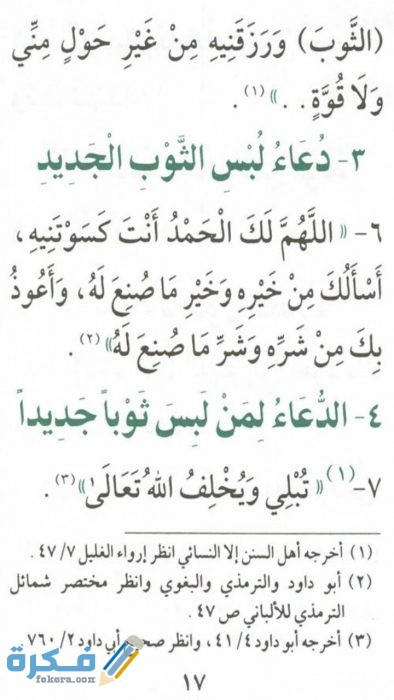 (الثَّوبَ) وَرَزَقَنِيهِ مِنْ غَيْرِ حَوْلٍ مِنِّي
وَلَا قُوَّةٍ . . »(١) .
٣- دُعَاءُ لُبْسِ الثَّوْبِ الْجَدِيدِ
٦- « اللَّهُمَّ لَكَ الْحَمْدُ أَنْتَ كَسَوْتَنِيهِ ،
أَسْأَلُكَ مِنْ خَيْرِهِ وَخَيْرِ مَا صُنِعَ لَهُ، وَأَعُوذُ
بِكَ مِنْ شَرِّهِ وَشَرِّ مَا صُنِعَ لَهُ»(٢) .
٤- الدُّعَاءُ لِمَنْ لَبِسَ ثَوْباً جَدِيداً
٧-(١)« تُبْلِي وَيُخْلِفُ اللهُ تَعَالَىٰ»(٣) .
(١) أخرجه أهل السنن إلا النسائي انظر إرواء الغليل ٧/ ٤٧ .
(٢) أبو داود والترمذي والبغوي وانظر مختصر شمائل
الترمذي للألباني ص ٤٧ .
(٣) أخرجه أبو داود ٤/ ٤١ ، وانظر صحيح أبي داود ٢/ ٧٦٠
١٧
فكرة
fekera.com